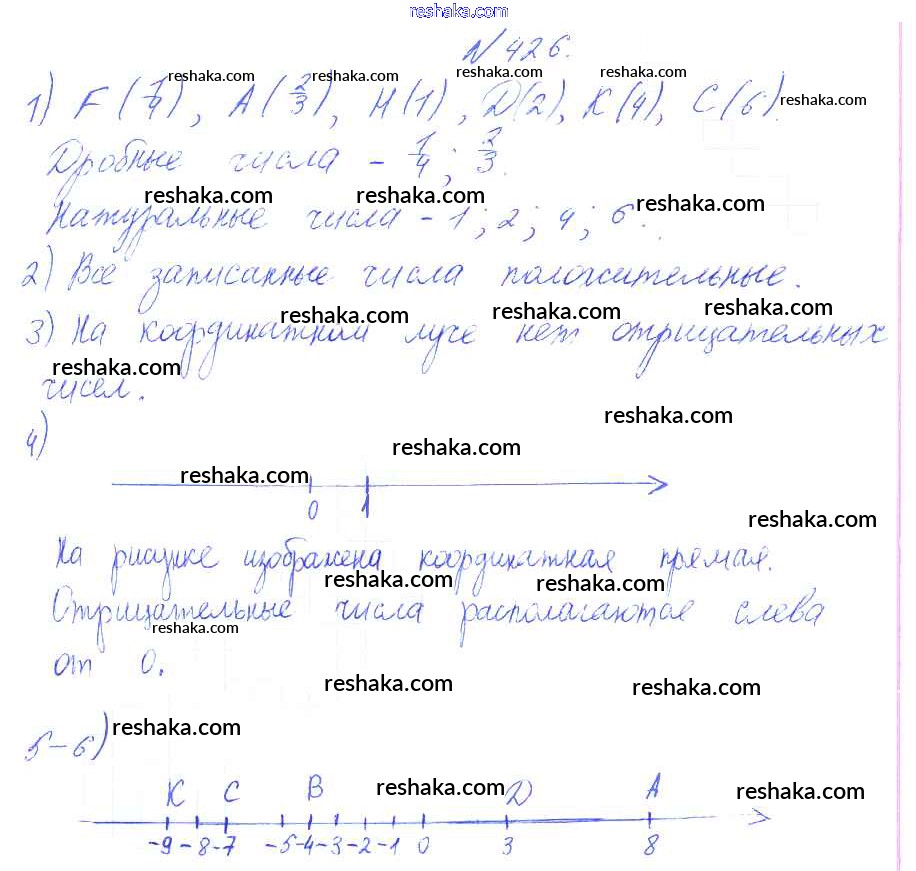 reshaka.com
№ 426.
1) F(1/4), A(2/3), M(1), D(2), K(4), C(6).
Дробные числа - 1/4; 2/3.
Натуральные числа - 1; 2; 4; 6.
2) Все записанные числа положительные.
3) На координатном луче нет отрицательных
чисел.
4)
0 1
На рисунке изображена координатная прямая.
Отрицательные числа располагаются слева
от 0.
5-6)
K C B D A
-9 -8 -7 -5 -4 -3 -2 -1 0 3 8
reshaka.com reshaka.com reshaka.com reshaka.com reshaka.com
reshaka.com reshaka.com
reshaka.com reshaka.com reshaka.com
reshaka.com
reshaka.com
reshaka.com reshaka.com
reshaka.com
reshaka.com reshaka.com
reshaka.com
reshaka.com reshaka.com
reshaka.com
reshaka.com reshaka.com